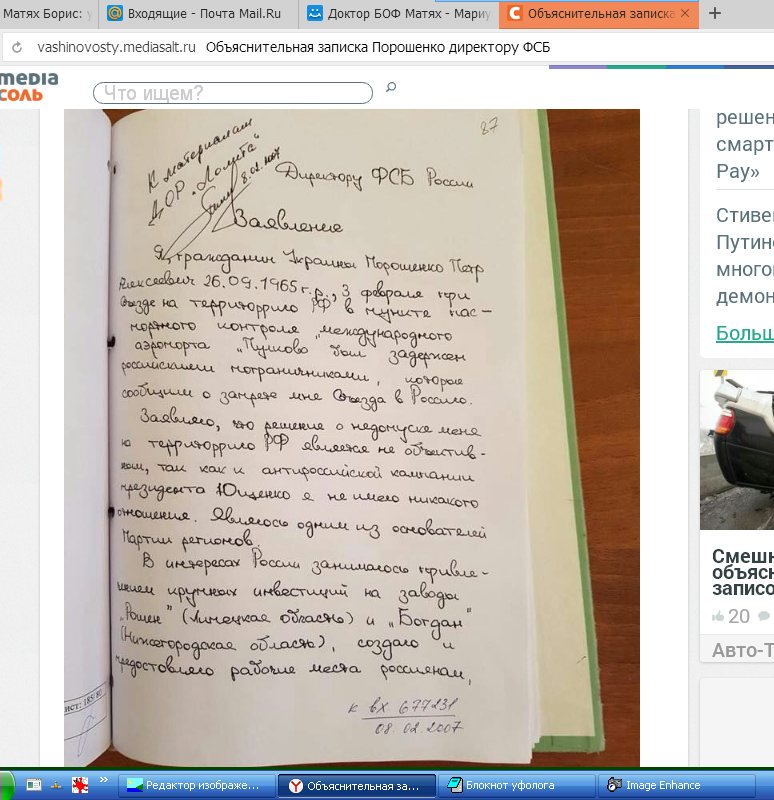 Матях Борис:
Входящие - Почта Mail.Ru
Доктор БОФ Матях - Мариу
Объяснительная записка
vashinovosty.mediasalt.ru Объяснительная записка Порошенко директору ФСБ
медиа
соль
Что ищем?
87
К материалам
ДОР „Лолита“
8.02.2007
Директору ФСБ России
Заявление
Я, гражданин Украины Порошенко Петр
Алексеевич 26.09.1965 г.р., 3 февраля при
въезде на территоррию РФ в пункте пас-
портного контроля международного
аэропорта „Пулково был задержен
российскими пограничниками, которые
сообщили о запрете мне въезда в Россию.
Заявляю, что решение о недопуске меня
на территоррию РФ является не объектив-
ном, так как к антироссийской кампании
президента Ющенко я не имею никакого
отношения. Являюсь одним из основателей
Партии регионов.
В интересах России занимаюсь привле-
чением крупных инвестиций на заводы
„Рошен“ (Липецкая область) и „Богдан“
(Нижегородская область), создаю и
предоставляю рабочие места россиянам,
к вх 677231
08.02.2007
ист: 185/80
решен
смарт
Pay»
Стивен
Путин
много
демон
Больш
Смешн
объясн
записо
20
Авто-Т
Редактор изображе...
Объяснительная за...
Блокнот уфолога
Image Enhance